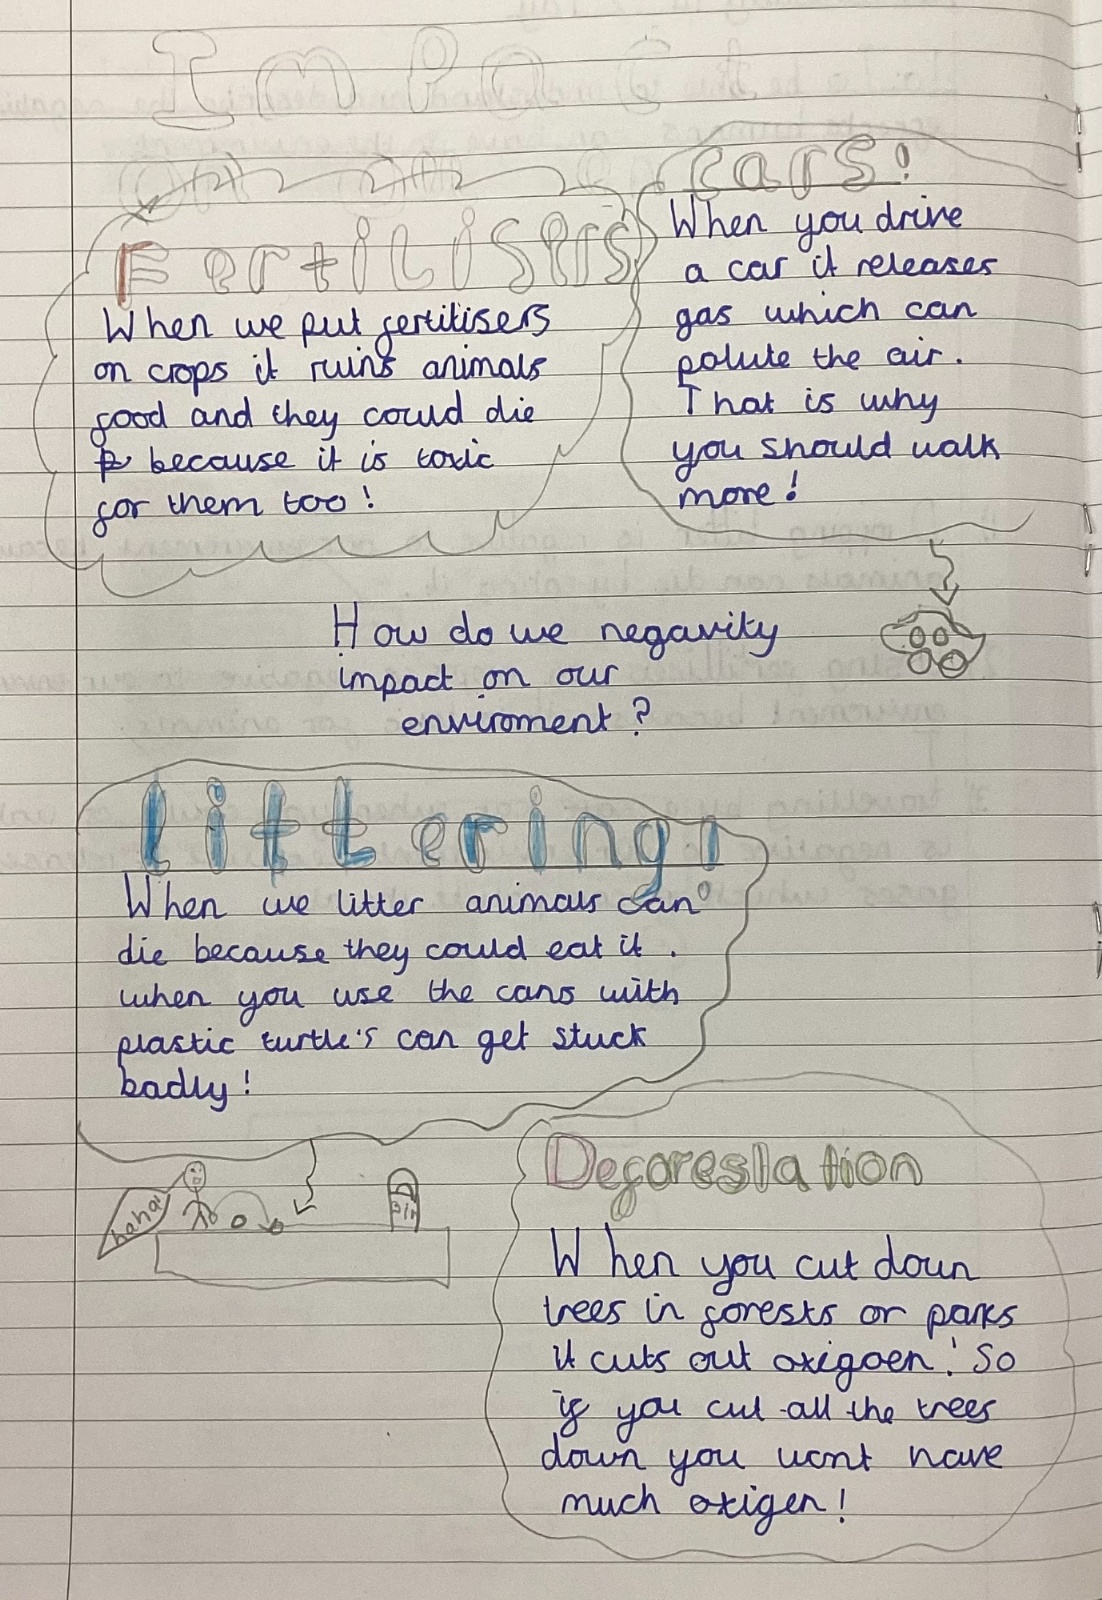 Fertilisers
When we put fertilisers
on crops it ruins animals
food and they could die
because it is toxic
for them too!
cars!
When you drive
a car it releases
gas which can
polute the air.
That is why
you should walk
more!
How do we negavity
impact on our
enviroment?
littering!
When we litter animals can
die because they could eat it.
when you use the cans with
plastic turtle's can get stuck
badly!
haha!
Bin
Deforestation
When you cut down
trees in forests or parks
it cuts out oxigoen! So
if you cut all the trees
down you wont have
much oxigen!